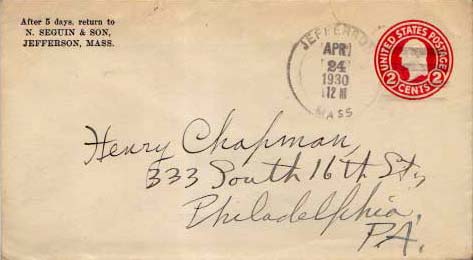 After 5 days, return to
N. SEGUIN & SON,
JEFFERSON, MASS.
JEFFERSON
APR
24
1930
12 M
MASS
UNITED STATES POSTAGE
2 CENTS 2
Henry Chapman,
333 South 16th St,
Philadelphia,
PA.